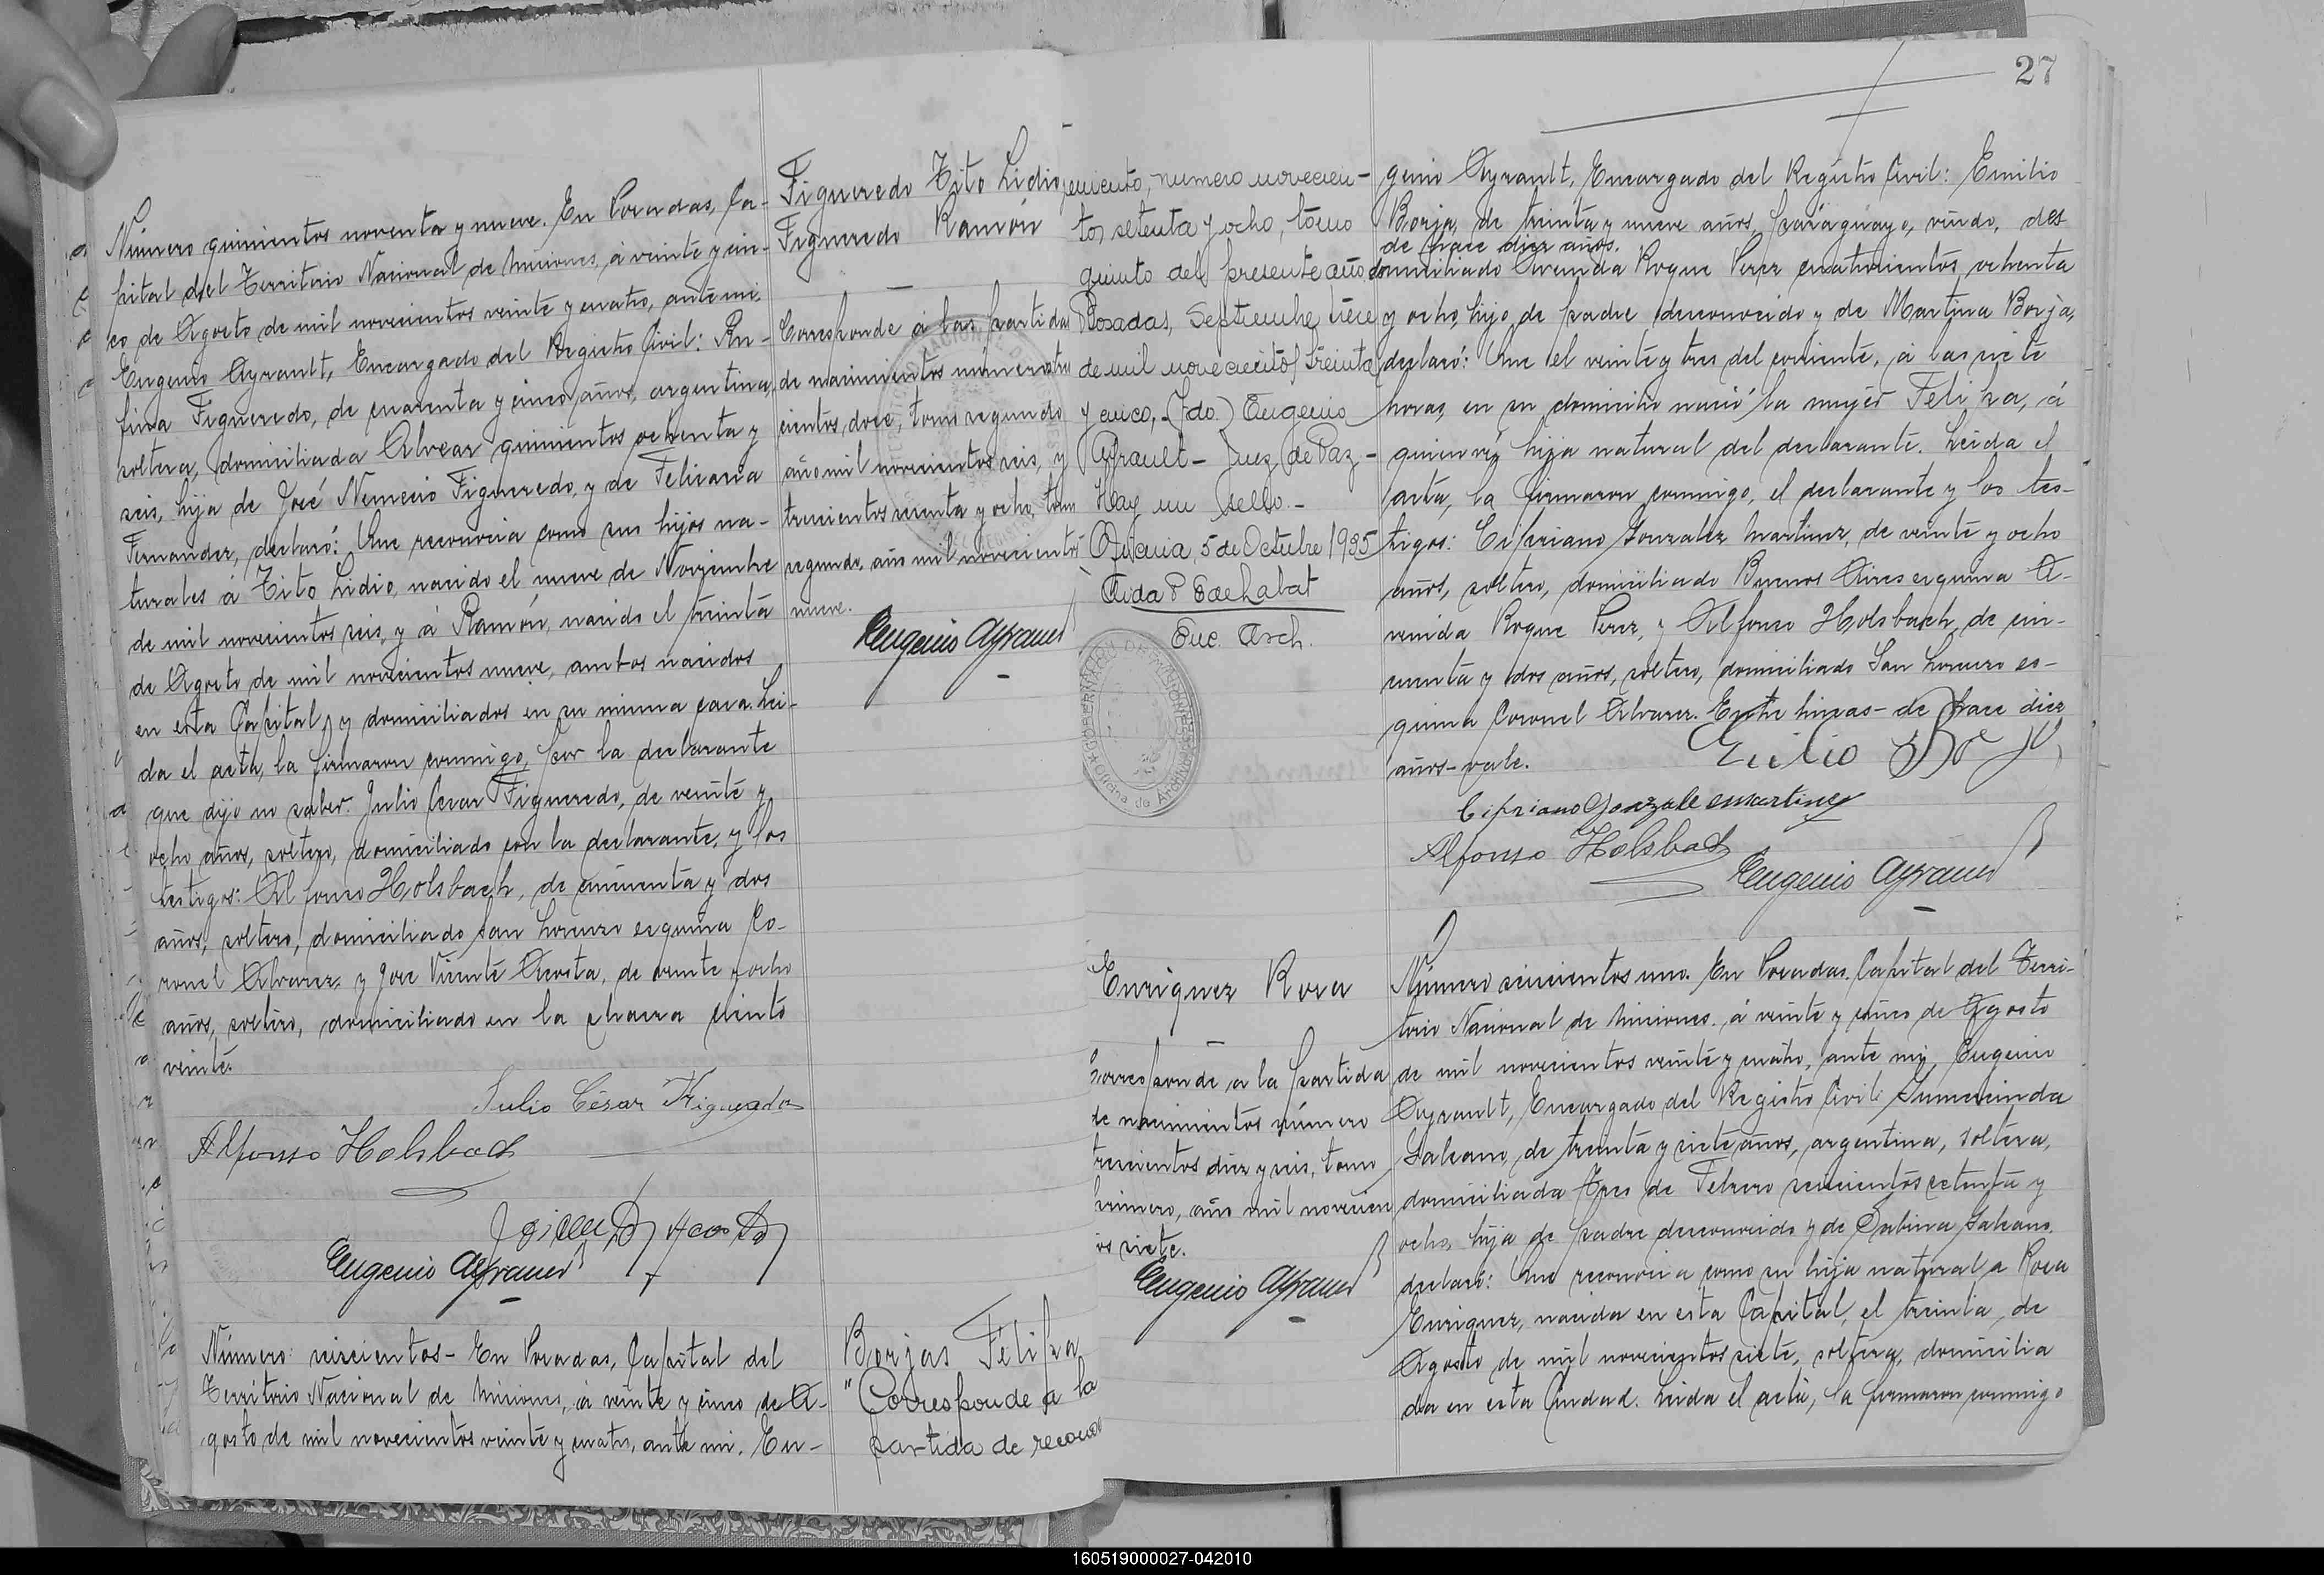 Número quinientos noventa y nueve. En Posadas, Ca-
pital del Territorio Nacional de Misiones, á veinte y cin-
co de Agosto de mil novecientos veinte y cuatro, ante mi,
Eugenio Ayrault, Encargado del Registro Civil: Ru-
fina Figueredo, de cuarenta y cinco años, argentina,
soltera, domiciliada Alvear quinientos ochenta y
seis, hija de José Nemecio Figueredo, y de Feliciana
Fernandez, declaró: Que reconocia como sus hijos na-
turales á Tito Lidio, nacido el nueve de Noviembre
de mil novecientos seis, y á Ramón, nacido el treinta
de Agosto de mil novecientos nueve, ambos nacidos
en esta Capital, y domiciliados en su misma casa. Lei-
da el acta, la firmaron conmigo, por la declarante
que dijo no saber: Julio Cesar Figueredo, de veinte y
ocho años, soltero, domiciliado con la declarante, y los
testigos: Alfonso Holsbach, de cincuenta y dos
años, soltero, domiciliado San Lorenzo esquina Co-
ronel Alvarez, y Jose Vicente Acosta, de veinte y ocho
años, soltero, domiciliado en la chacra ciento
veinte.
Julio César Figueredo
Alfonso Holsbach
Acosta
Eugenio Ayrault
Número: seiscientos- En Posadas, Capital del
Territorio Nacional de Misiones, á veinte y cinco de A-
gosto de mil novecientos veinte y cuatro, ante mi, Eu-
Figueredo Tito Lidio
Figueredo Ramón
Corresponde á las partidas
de nacimientos número
cientos doce, tomo segundo
año mil novecientos seis, y
trescientos ochenta y ocho, tomo
segundo, año mil novecientos
nueve.
Eugenio Ayrault
Borjas Felipa
"Corresponde a la
partida de reconoci
27
miento, número novecien-
tos setenta y ocho, tomo
quinto del presente año.
Posadas, Septiembre trece
de mil novecientos treinta
y cinco.- (fdo.) Eugenio
Ayrault- Juez de Paz-
Hay un sello.-
Oficina, 5 de Octubre 1935
Enc. Arch.
Enriquez Rosa
Corresponde a la partida
de nacimientos número
trescientos diez y seis, tomo
primero, año mil novecien
os siete.
Eugenio Ayrault
genio Ayrault, Encargado del Registro Civil: Emilio
Borja, de treinta y nueve años, paraguayo, viudo, des
de hace diez años.
domiciliado Avenida Roque Perez cuatrocientos ochenta
y ocho, hijo de padre desconocido y de Martina Borja,
declaró: Que el veinte y tres del corriente, á las siete
horas, en su domicilio nació la mujer Felipa, á
quien vi, hija natural del declarante. Leida el
acta, la firmaron conmigo, el declarante y los tes-
tigos: Cipriano Gonzalez Martinez, de veinte y ocho
años, soltero, domiciliado Buenos Aires esquina A-
venida Roque Perez, y Alfonso Holsbach, de cin-
cuenta y dos años, soltero, domiciliado San Lorenzo es-
quina Coronel Alvarez. Entre lineas- de hace diez
años- vale.
Emilio Borja
Cipriano Gonzale Martinez
Alfonso Holsbach
Eugenio Ayrault
Número seiscientos uno. En Posadas, Capital del Terri-
torio Nacional de Misiones, á veinte y cinco de Agosto
de mil novecientos veinte y cuatro, ante mi, Eugenio
Ayrault, Encargado del Registro Civil: Gumercinda
Galeano, de treinta y siete años, argentina, soltera,
domiciliada Tres de Febrero seiscientos setenta y
ocho, hija de padre desconocido y de Sabina Galeano.
declaró: Que reconocia como su hija natural a Rosa
Enriquez, nacida en esta Capital, el treinta de
Agosto de mil novecientos siete, soltera, domicilia
da en esta Ciudad. Leida el acta, la firmaron conmigo
160519000027-042010